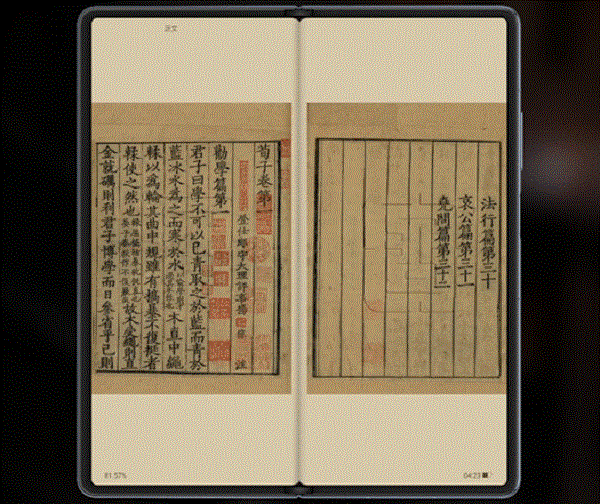 正文
法行篇第三十
哀公篇第三十一
堯問篇第三十二
荀子卷第一
登仕郎守大理評事楊 註
勸學篇第一
君子曰學不可以已青取之於藍而青於
藍冰水為之而寒於水 木直中繩
輮以為輪其曲中規雖有槁暴不復挺者
輮使之然也 故木受繩則直
金就礪則利君子博學而日參省乎己則
81.57%
04:23